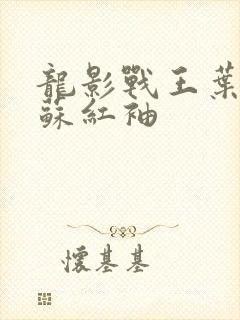 龍影戰王葉
蘇紅袖
懷基基